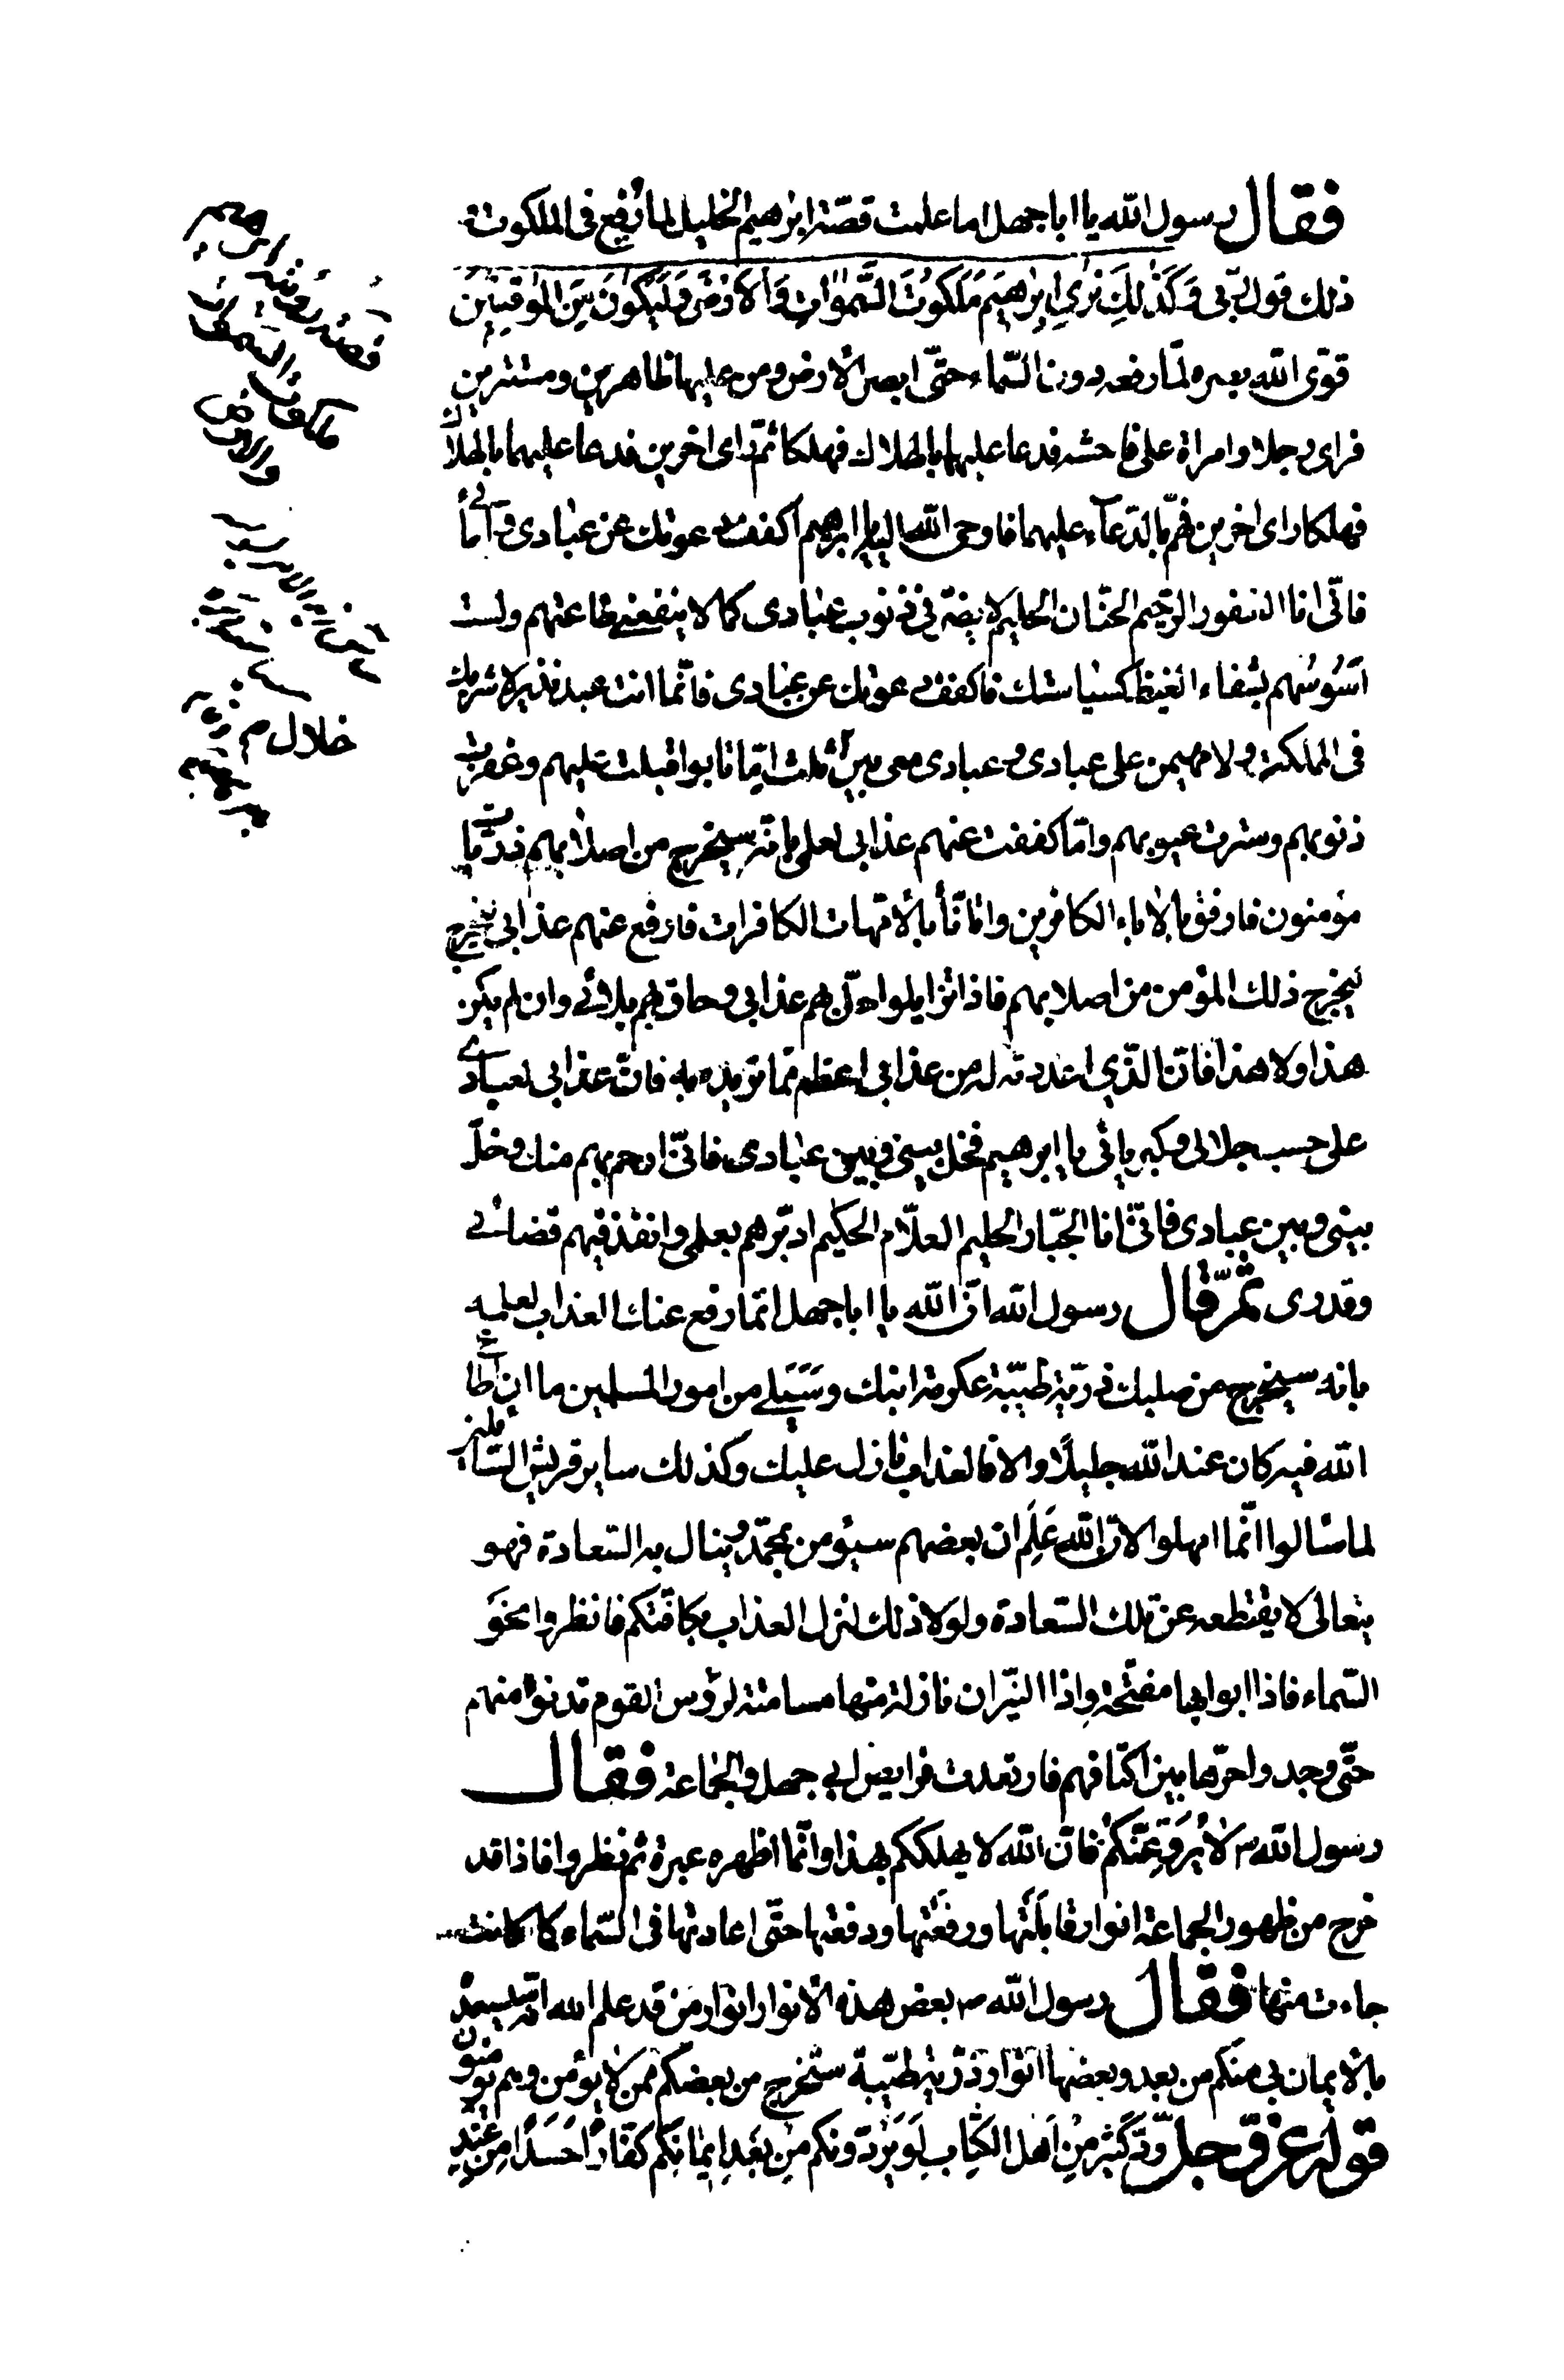 فقال رسول الله يا ابا جهل اما علمت قصّة ابرهيم الخليل لما رفع فى الملكوت
ذلك قول ربّى وَكَذٰلِكَ نُرِي اِبرٰهيمَ مَلَكُوتَ السَّمٰواتِ وَالاَرْضِ وَلِيَكُونَ مِنَ المُوقِنِينَ
قوّى الله بصره لمّا رفعه دون السّماء حتّى ابصر الارض ومن عليها ظاهرين ومستترين
فراى رجلا وامراة على فاحشه فدعا عليهما بالهلاك فهلكا ثمّ راى اخرين فدعا عليهما بالهلاك
فهلكا راى اخرين فهمّ بالدّعآء عليهما فاوحى الله اليه يا ابرهيم اكفف دعوتك عن عبادى وآمائى
فانّى انا الغفور الرّحيم الحنّان الحليم لا يضرّنى ذنوب عبادى كما لا ينفعنى طاعتهم ولست
اَسُوسُهم بشفاء الغيظ كسياستك فاكفف دعوتك عن عبادى فانّما انت عبد نذير لا شريك
فى المملكة ولا مهيمن على عبادى وعبادى معى بين ثلث امّا تابوا فتبت عليهم وغفرت
ذنوبهم وسترت عيوبهم وامّا كففت عنهم عذابى لعلمى بانّه سيخرج من اصلابهم ذرّيات
مؤمنون فارفق بالاباء الكافرين واتانّا بالامّهات الكافرات فارفع عنهم عذابى ليخرج
ليخرج ذلك المؤمن من اصلابهم فاذا تزايلوا حلّ بهم عذابى وحاق بهم بلائى وان لم يكن
هذا ولا هذا فانّ الّذي اعددته له من عذابى اعظم ممّا تريده به فانّ عذابى لعبادى
على حسب جلالى وكبريائى يا ابرهيم فخل بينى وبين عبادى فانّى ارحم بهم منك وخلّ
بينى وبين عبادى فانّى انا الجبّار الحليم العلّام الحكيم ادبّرهم بعلمى وانفذ فيهم قضائى
وقدرى ثمّ قال رسول الله انّ الله يا ابا جهل انّما رفع عنك العذاب لعلمه
بانه سيخرج من صلبك ذرّية طيّبة عكرمة ابنك وسَيَلى من امور المسلمين ما ان اطاع
الله فيه كان عند الله جليلًا والا فالعذاب نازل عليك وكذلك ساير قريش السّائلين
لما سالوا انّما امهلوا لانّ الله عَلِمَ ان بعضهم سيؤمن بمحمّد وينال به السّعادة فهو
تعالى لا يقتطعه عن تلك السّعادة ولولا ذلك لنزل العذاب بكافتكم فانظروا نحو
السّماء فاذا ابوابها مفتّحة واذا النيّران نازلة منها مسامتة لرؤس القوم تدنوا منهم
حتّى وجدوا حرّها بين اكتافهم فارتعدت فرايص ابى جهل والجماعة فقال
رسول الله ص لا يُرَوِّعَنَّكُم فانّ الله لا يهلككم بهذا وانّما اظهره عبرة ثمّ نظروا فاذا قد
خرج من ظهور الجماعة انوار قابَلَتها ورفَعَتها ودفعتها حتّى اعادتها فى السّماء كما كانت
جاءت منها فقال رسول الله ص بعض هذه الانوار انوار من قد علم الله انّه سيسعد
بالايمان بى منكم من بعد وبعضها انوار ذرّية طيّبة ستخرج من بعضكم ممّن لا يؤمن وهم يؤمنون
قوله عزّ وجلّ وَدَّ كَثيرٌ مِنْ اَهلِ الكِتٰابِ لَو يَرُدّونكم مِن بَعدِ ايمٰانِكُم كفّارًا حَسَدًا مِن عِندِ
قصّه
ملكوت
والارض
خلال